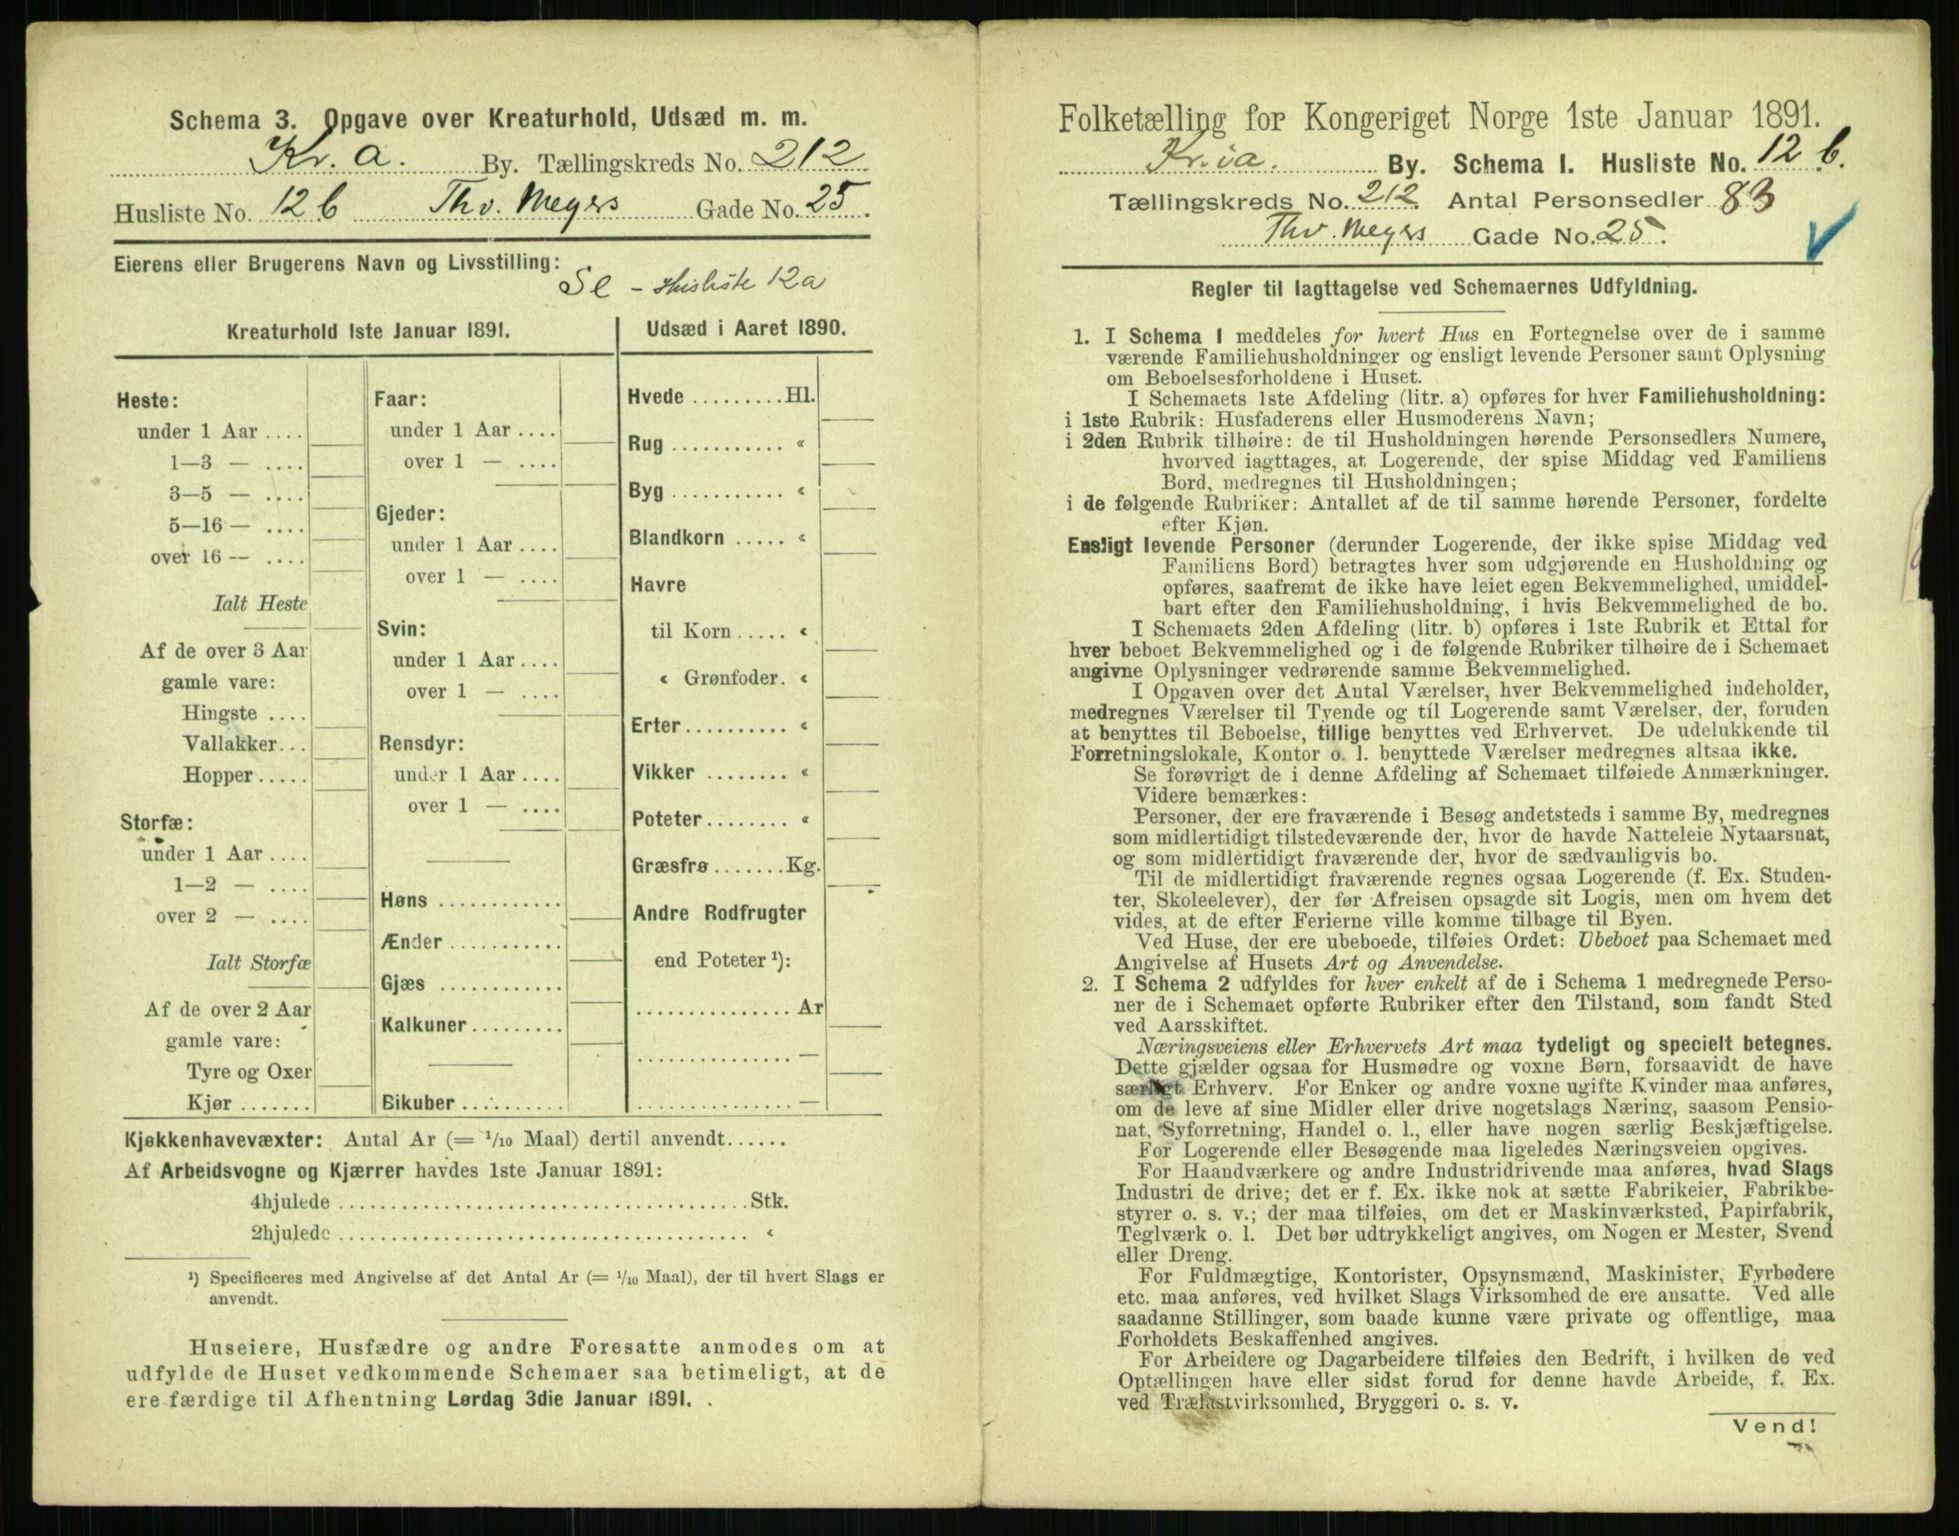 Schema 3. Opgave over Kreaturhold, Udsæd m. m.
Kr. a. By. Tællingskreds No. 212
Husliste No. 12 b Thv. Meyers Gade No. 25.
Eierens eller Brugerens Navn og Livsstilling:
Se - Husliste 12a
Kreaturhold 1ste Januar 1891.
Heste:
under 1 Aar ....
1—3 — ....
3—5 — ....
5—16 — ....
over 16 — ....
Ialt Heste
Af de over 3 Aar
gamle vare:
Hingste ....
Vallakker...
Hopper.....
Storfæ:
under 1 Aar ....
1—2 — ....
over 2 — ....
Ialt Storfæ
Af de over 2 Aar
gamle vare:
Tyre og Oxer
Kjør.......
Faar:
under 1 Aar ....
over 1 — ....
Gjeder:
under 1 Aar ....
over 1 — ....
Svin:
under 1 Aar ....
over 1 — ....
Rensdyr:
under 1 Aar ....
over 1 — ....
Høns ............
Ænder...........
Gjæs ............
Kalkuner.........
Bikuber ..........
Udsæd i Aaret 1890.
Hvede .........Hl.
Rug ........... «
Byg ........... «
Blandkorn ..... «
Havre
til Korn ..... «
« Grønfoder. «
Erter.......... «
Vikker ........ «
Poteter........ «
Græsfrø .......Kg.
Andre Rodfrugter
end Poteter ¹):
............... Ar
............... —
............... —
Kjøkkenhavevæxter: Antal Ar (= 1/10 Maal) dertil anvendt......
Af Arbeidsvogne og Kjærrer havdes 1ste Januar 1891:
4hjulede .......................................Stk.
2hjulede ....................................... «
¹) Specificeres med Angivelse af det Antal Ar (= 1/10 Maal), der til hvert Slags er
anvendt.
Huseiere, Husfædre og andre Foresatte anmodes om at
udfylde de Huset vedkommende Schemaer saa betimeligt, at de
ere færdige til Afhentning Lørdag 3die Januar 1891.
Folketælling for Kongeriget Norge 1ste Januar 1891.
Kr.ia. By. Schema 1. Husliste No. 12 b.
Tællingskreds No. 212. Antal Personsedler 83
Thv. Meyers Gade No. 25.
Regler til Iagttagelse ved Schemaernes Udfyldning.
1. I Schema 1 meddeles for hvert Hus en Fortegnelse over de i samme
værende Familiehusholdninger og ensligt levende Personer samt Oplysning
om Beboelsesforholdene i Huset.
I Schemaets 1ste Afdeling (litr. a) opføres for hver Familiehusholdning:
i 1ste Rubrik: Husfaderens eller Husmoderens Navn;
i 2den Rubrik tilhøire: de til Husholdningen hørende Personsedlers Numere,
hvorved iagttages, at Logerende, der spise Middag ved Familiens
Bord, medregnes til Husholdningen;
i de følgende Rubriker: Antallet af de til samme hørende Personer, fordelte
efter Kjøn.
Ensligt levende Personer (derunder Logerende, der ikke spise Middag ved
Familiens Bord) betragtes hver som udgjørende en Husholdning og
opføres, saafremt de ikke have leiet egen Bekvemmelighed, umiddel-
bart efter den Familiehusholdning, i hvis Bekvemmelighed de bo.
I Schemaets 2den Afdeling (litr. b) opføres i 1ste Rubrik et Ettal for
hver beboet Bekvemmelighed og i de følgende Rubriker tilhøire de i Schemaet
angivne Oplysninger vedrørende samme Bekvemmelighed.
I Opgaven over det Antal Værelser, hver Bekvemmelighed indeholder,
medregnes Værelser til Tyende og til Logerende samt Værelser, der, foruden
at benyttes til Beboelse, tillige benyttes ved Erhvervet. De udelukkende til
Forretningslokale, Kontor o. l. benyttede Værelser medregnes altsaa ikke.
Se forøvrigt de i denne Afdeling af Schemaet tilføiede Anmærkninger.
Videre bemærkes:
Personer, der ere fraværende i Besøg andetsteds i samme By, medregnes
som midlertidigt tilstedeværende der, hvor de havde Natteleie Nytaarsnat,
og som midlertidigt fraværende der, hvor de sædvanligvis bo.
Til de midlertidigt fraværende regnes ogsaa Logerende (f. Ex. Studen-
ter, Skoleelever), der før Afreisen opsagde sit Logis, men om hvem det
vides, at de efter Ferierne ville komme tilbage til Byen.
Ved Huse, der ere ubeboede, tilføies Ordet: Ubeboet paa Schemaet med
Angivelse af Husets Art og Anvendelse.
2. I Schema 2 udfyldes for hver enkelt af de i Schema 1 medregnede Perso-
ner de i Schemaet opførte Rubriker efter den Tilstand, som fandt Sted
ved Aarsskiftet.
Næringsveiens eller Erhvervets Art maa tydeligt og specielt betegnes.
Dette gjælder ogsaa for Husmødre og voxne Børn, forsaavidt de have
særligt Erhverv. For Enker og andre voxne ugifte Kvinder maa anføres,
om de leve af sine Midler eller drive nogetslags Næring, saasom Pensio-
nat, Syforretning, Handel o. l., eller have nogen særlig Beskjæftigelse.
For Logerende eller Besøgende maa ligeledes Næringsveien opgives.
For Haandværkere og andre Industridrivende maa anføres, hvad Slags
Industri de drive; det er f. Ex. ikke nok at sætte Fabrikeier, Fabrikbe-
styrer o. s. v.; der maa tilføies, om det er Maskinværksted, Papirfabrik,
Teglværk o. l. Det bør udtrykkeligt angives, om Nogen er Mester, Svend
eller Dreng.
For Fuldmægtige, Kontorister, Opsynsmænd, Maskinister, Fyrbødere
etc. maa anføres, ved hvilket Slags Virksomhed de ere ansatte. Ved alle
saadanne Stillinger, som baade kunne være private og offentlige, maa
Forholdets Beskaffenhed angives.
For Arbeidere og Dagarbeidere tilføies den Bedrift, i hvilken de ved
Optællingen have eller sidst forud for denne havde Arbeide, f. Ex.
ved Trælastvirksomhed, Bryggeri o. s. v.
Vend!